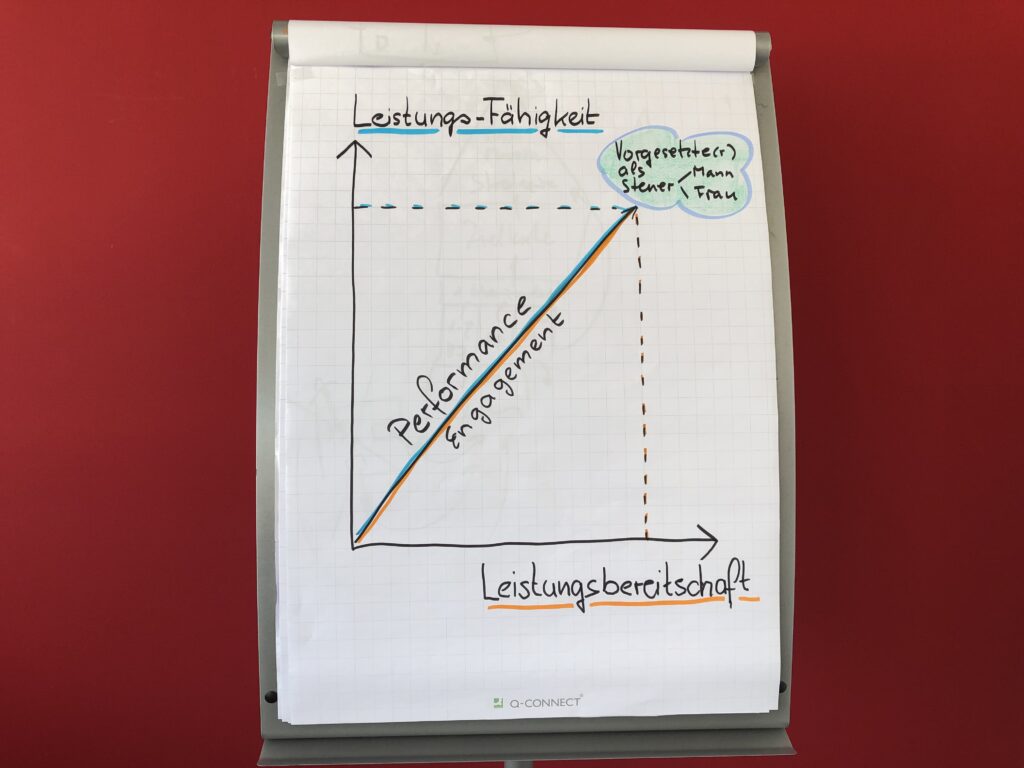 Leistungs-Fähigkeit
Vorgesetzte(r)
als Mann
Steuer Frau
Performance
Engagement
Leistungsbereitschaft
Q-CONNECT®